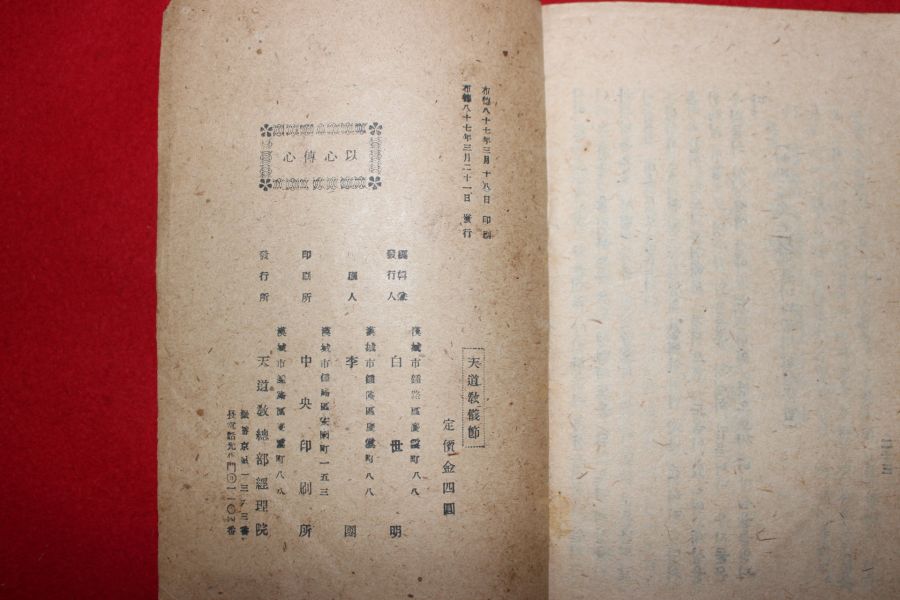 布德八十七年三月十八日 印刷
布德八十七年三月二十一日 發行
天道敎儀節
定價金四圓
漢城市鍾路區慶雲町八八
編輯兼
發行人 白世明
漢城市鍾路區慶雲町八八
刷人 李團
漢城市鍾路區安國町一五三
印刷所 中央印刷所
漢城市鍾路區慶雲町八八
發行所 天道敎總部經理院
以心傳心